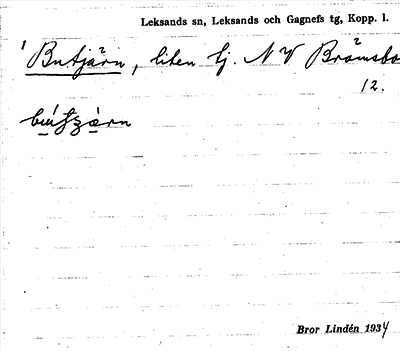 Leksands sn, Leksands och Gagnefs tg, Kopp. l.
1 Butjärn, liten tj. NV Brömsbo
12.
Bror Lindén 1934